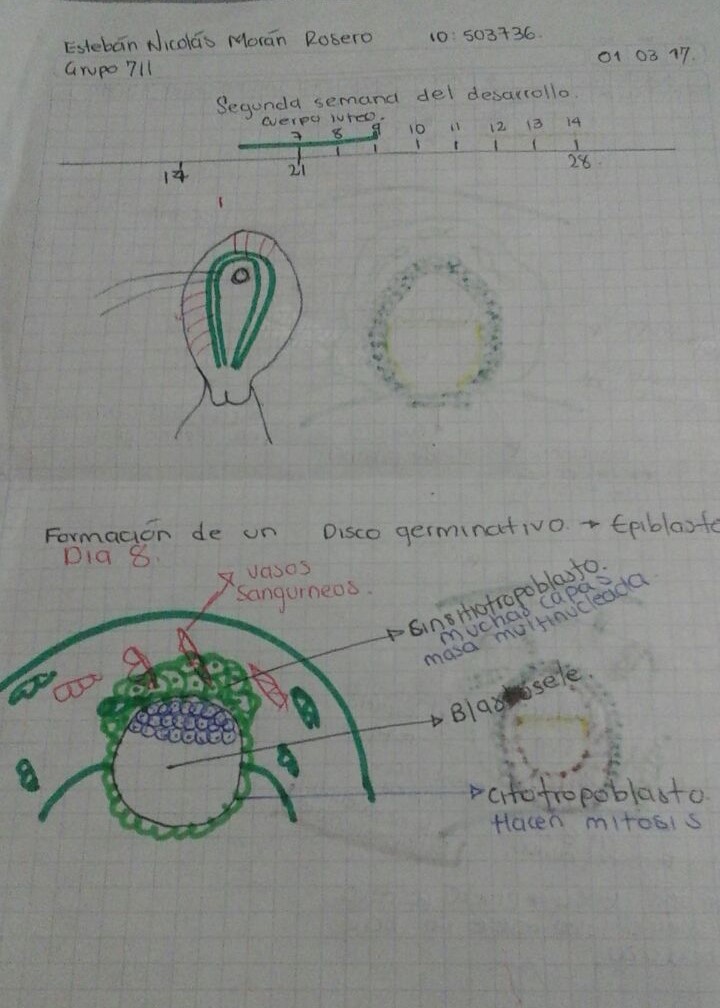 Estebán Nicolás Morán Rosero ID: 503736.
Grupo 711
01 03 17.
Segunda semana del desarrollo.
cuerpo luteo.
7 8 9 10 11 12 13 14
14 21 28
Formación de un Disco germinativo → Epiblasto
Dia 8.
vasos
sangurneos.
Sinsitiotropoblasto.
muchas capas
masa multinucleada
Blastosele.
citotropoblasto
Hacen mitosis